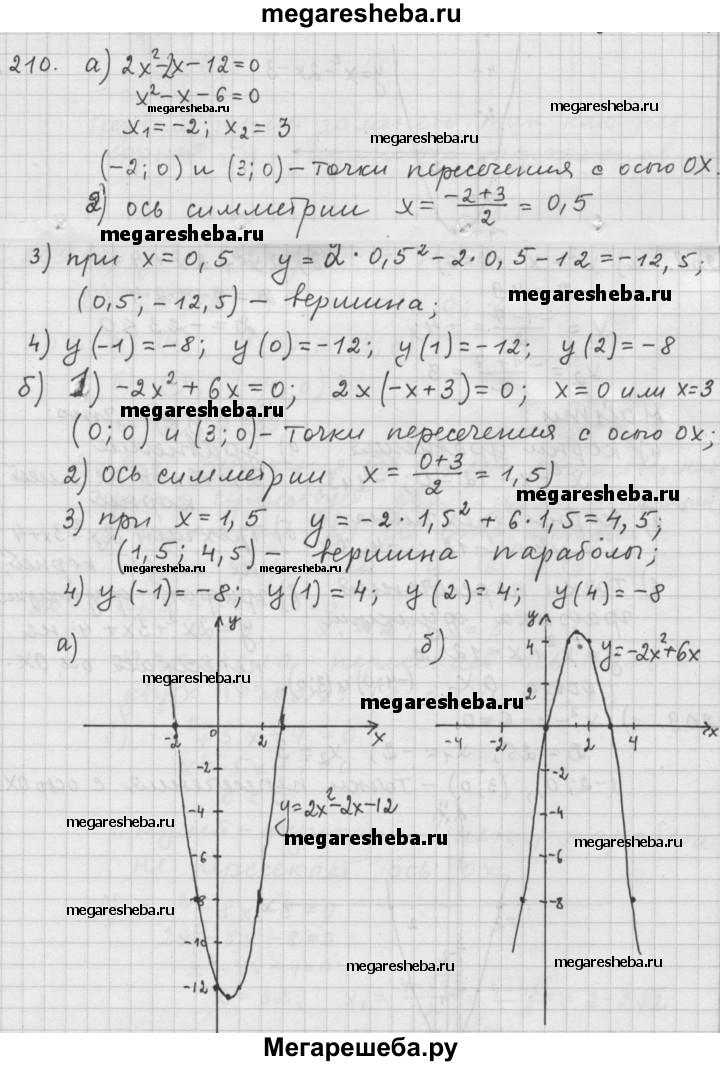 megaresheba.ru
210. а) 2x²-2x-12=0
x²-x-6=0
megaresheba.ru
megaresheba.ru
x₁=-2; x₂=3
megaresheba.ru
(-2;0) и (3;0)-точки пересечения с осью OX.
2) ось симметрии x=(-2+3)/2=0,5
megaresheba.ru
3) при x=0,5 y=2·0,5²-2·0,5-12=-12,5;
(0,5;-12,5)-вершина;
megaresheba.ru
4) y(-1)=-8; y(0)=-12; y(1)=-12; y(2)=-8
б) 1) -2x²+6x=0; 2x(-x+3)=0; x=0 или x=3
megaresheba.ru
(0;0) и (3;0)-точки пересечения с осью OX;
2) ось симметрии x=(0+3)/2=1,5)
megaresheba.ru
3) при x=1,5 y=-2·1,5²+6·1,5=4,5;
(1,5; 4,5)-вершина параболы;
megaresheba.ru megaresheba.ru
4) y(-1)=-8; y(1)=4; y(2)=4; y(4)=-8
а) y б) y
4 y=-2x²+6x
megaresheba.ru
2
megaresheba.ru
-2 0 2 x -4 -2 2 4 x
-2 -2
y=2x²-2x-12
-4 -4
megaresheba.ru
megaresheba.ru
megaresheba.ru
-6 -6
-8 -8
megaresheba.ru
-10
megaresheba.ru
megaresheba.ru
-12
Мегарешеба.ру